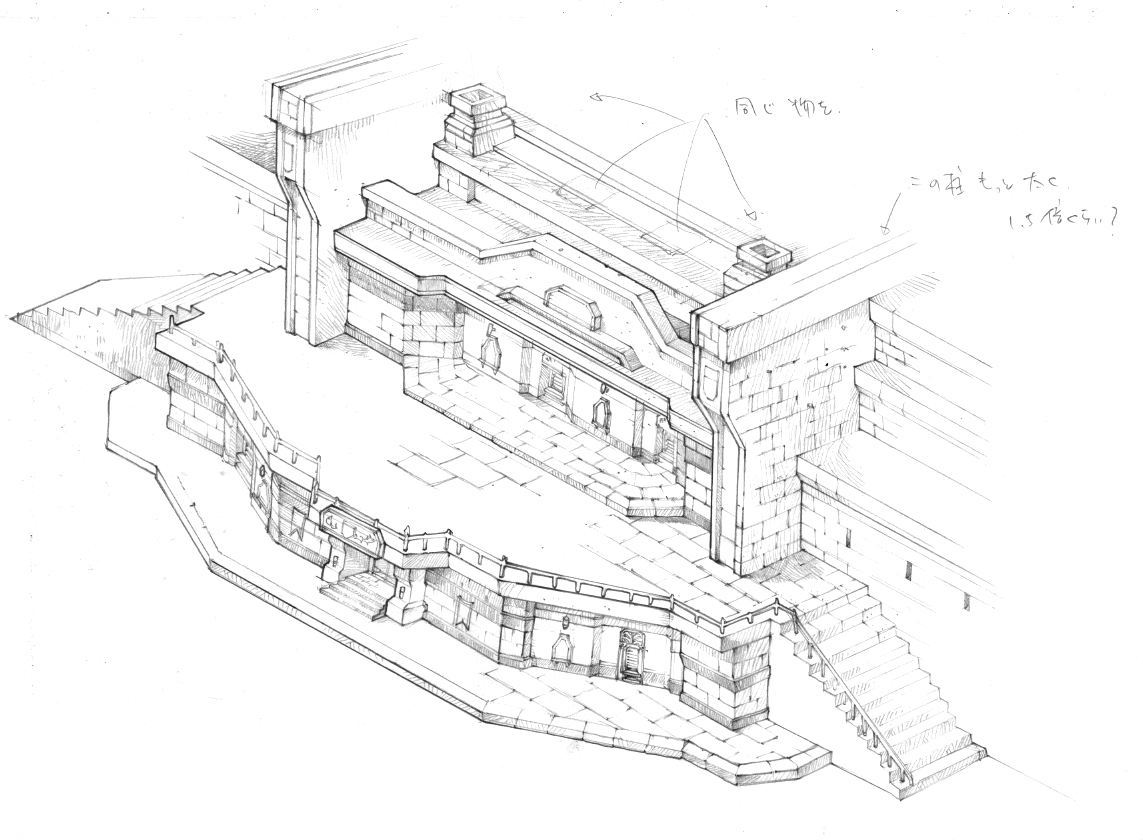 同じ物を.
この柱もっと太く.
1.5倍くらい?